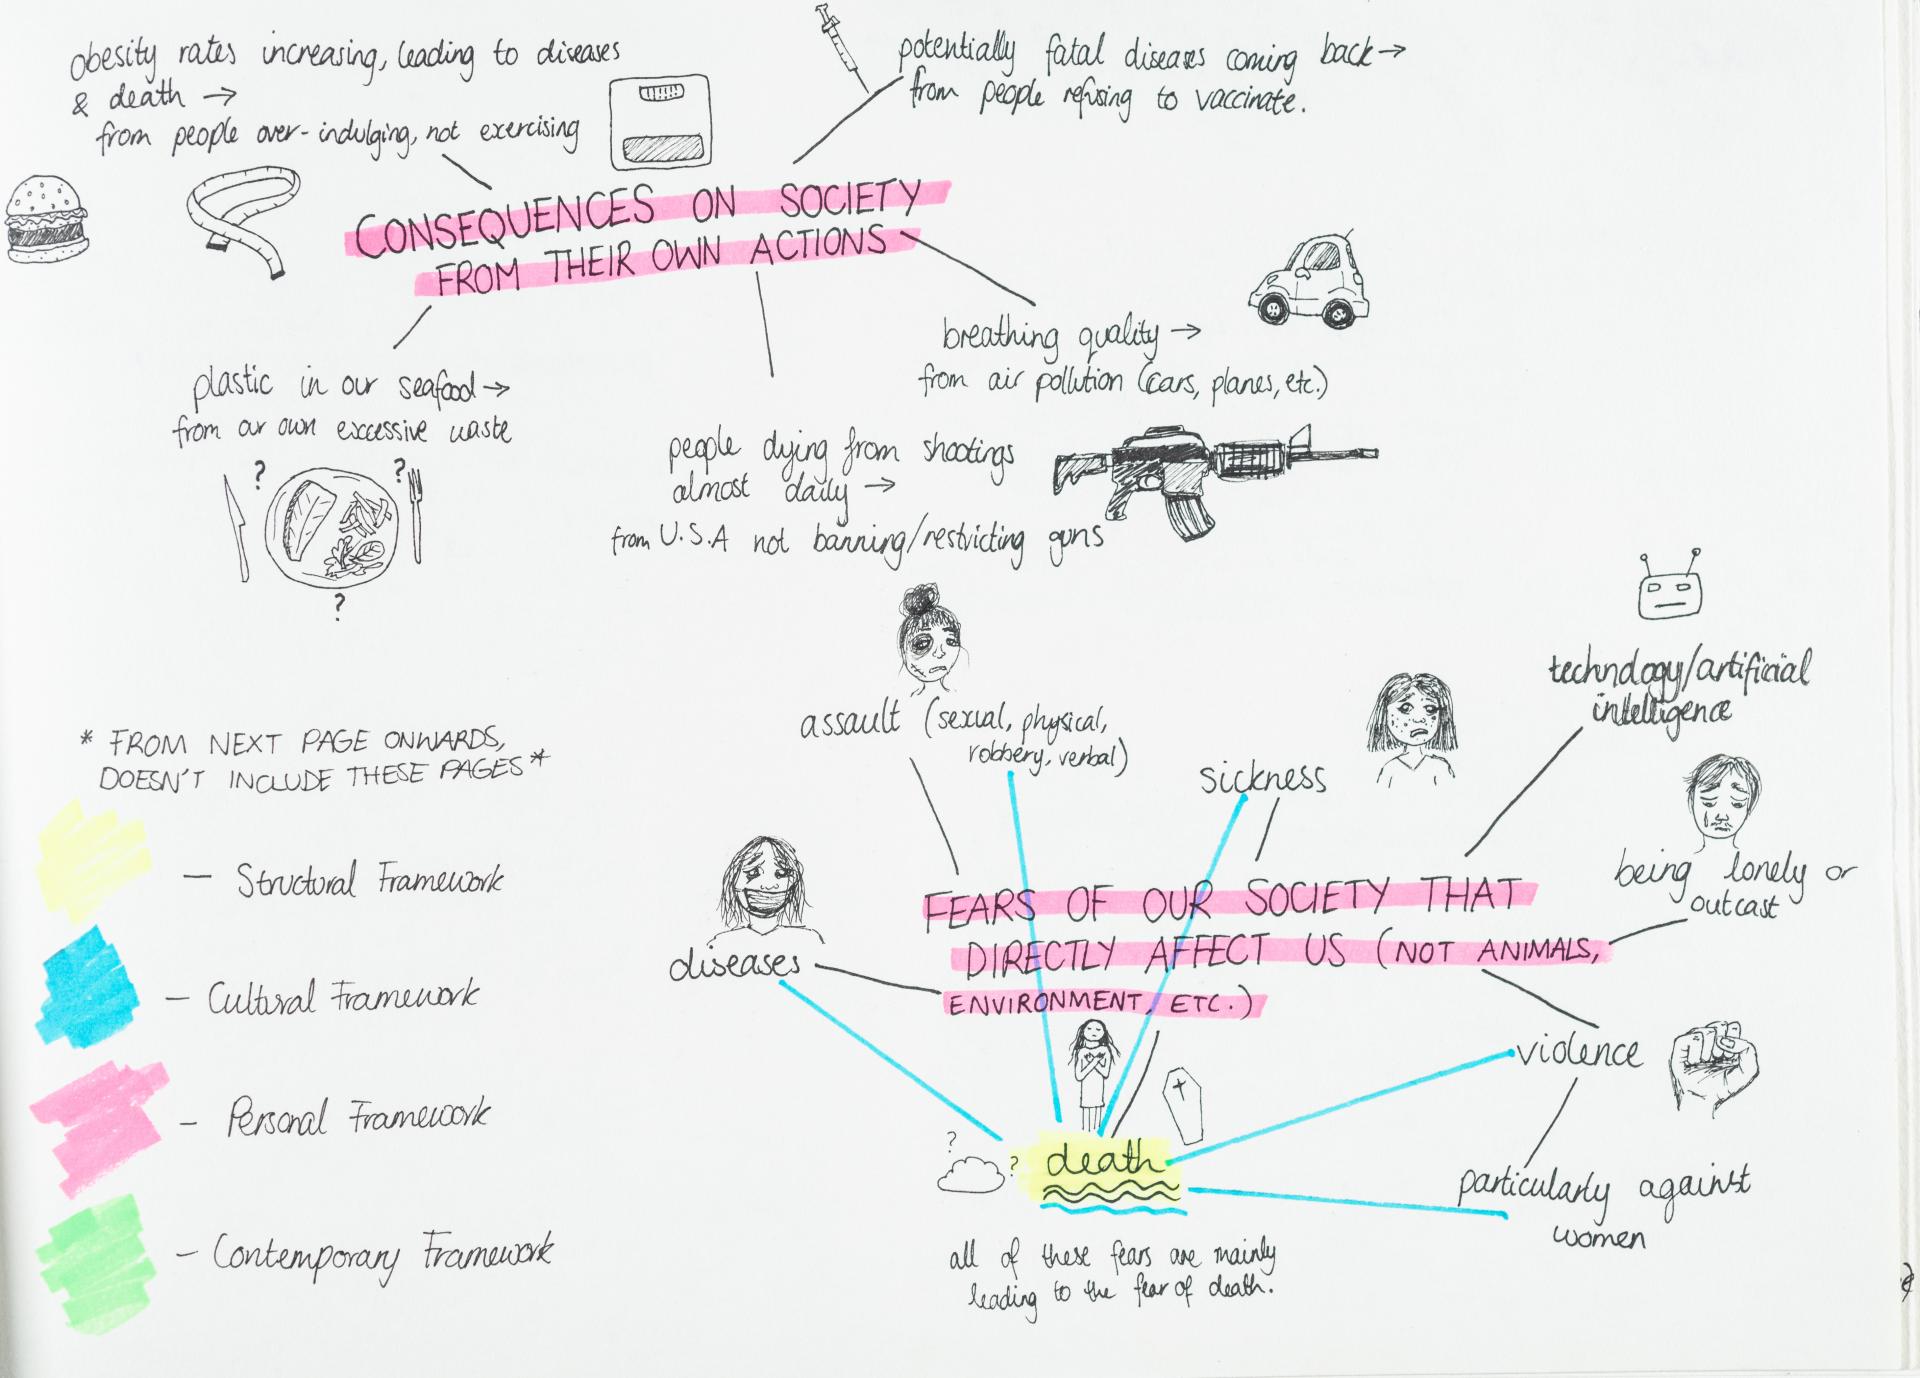 obesity rates increasing, leading to diseases
& death →
from people over-indulging, not exercising
potentially fatal diseases coming back →
from people refusing to vaccinate.
CONSEQUENCES ON SOCIETY
FROM THEIR OWN ACTIONS
breathing quality →
from air pollution (cars, planes, etc.)
plastic in our seafood →
from our own excessive waste
? ?
?
people dying from shootings
almost daily →
from U.S.A not banning/restricting guns
* FROM NEXT PAGE ONWARDS,
DOESN'T INCLUDE THESE PAGES *
— Structural Framework
— Cultural Framework
— Personal Framework
— Contemporary Framework
assault (sexual, physical,
robbery, verbal)
sickness
technology/artificial
intelligence
being lonely or
outcast
diseases
FEARS OF OUR SOCIETY THAT
DIRECTLY AFFECT US (NOT ANIMALS,
ENVIRONMENT, ETC.)
violence
particularly against
women
? ?
death
all of these fears are mainly
leading to the fear of death.